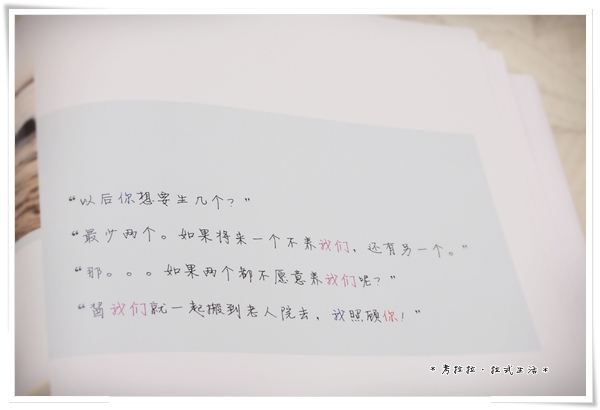 “以后你想要生几个？”
“最少两个。如果将来一个不养我们，还有另一个。”
“那。。。如果两个都不愿意养我们呢？”
“酱我们就一起搬到老人院去，我照顾你！”
*考拉拉·拉式生活*